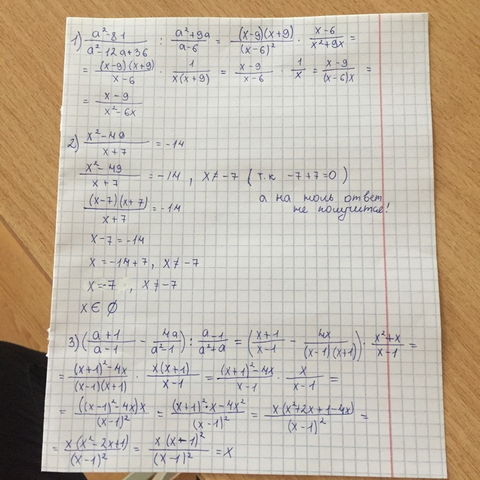 1) (a²-81)/(a²-12a+36) : (a²+9a)/(a-6) = ((x-9)(x+9))/((x-6)²) · (x-6)/(x²+9x) =
= ((x-9)(x+9))/(x-6) · 1/(x(x+9)) = (x-9)/(x-6) · 1/x = (x-9)/((x-6)x) =
= (x-9)/(x²-6x)
2) (x²-49)/(x+7) = -14
(x²-49)/(x+7) = -14, x≠-7 (т.к -7+7=0)
а на ноль ответ
не получится!
((x-7)(x+7))/(x+7) = -14
x-7=-14
x=-14+7, x≠-7
x=-7, x≠-7
x∈∅
3) ((a+1)/(a-1) - 4a/(a²-1)) : (a-1)/(a²+a) = ((x+1)/(x-1) - 4x/((x-1)(x+1))) · (x²+x)/(x-1) =
= ((x+1)²-4x)/((x-1)(x+1)) · (x(x+1))/(x-1) = ((x+1)²-4x)/(x-1) · x/(x-1) =
= (((x-1)²-4x)x)/((x-1)²) = ((x+1)²·x-4x²)/((x-1)²) = (x(x²+2x+1-4x))/((x-1)²) =
= (x(x²-2x+1))/((x-1)²) = (x(x-1)²)/((x-1)²) = x